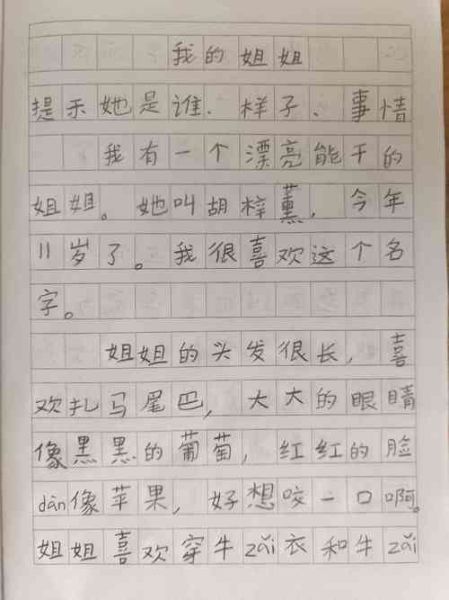 我的姐姐
提示她是谁、样子、事情
我有一个漂亮能干的
姐姐。她叫胡梓薰，今年
11岁了。我很喜欢这个名
字。
姐姐的头发很长，喜
欢扎马尾巴，大大的眼睛
像黑黑的葡萄，红红的脸
dàn像苹果，好想咬一口啊。
姐姐喜欢穿牛zǎi衣和牛zǎi